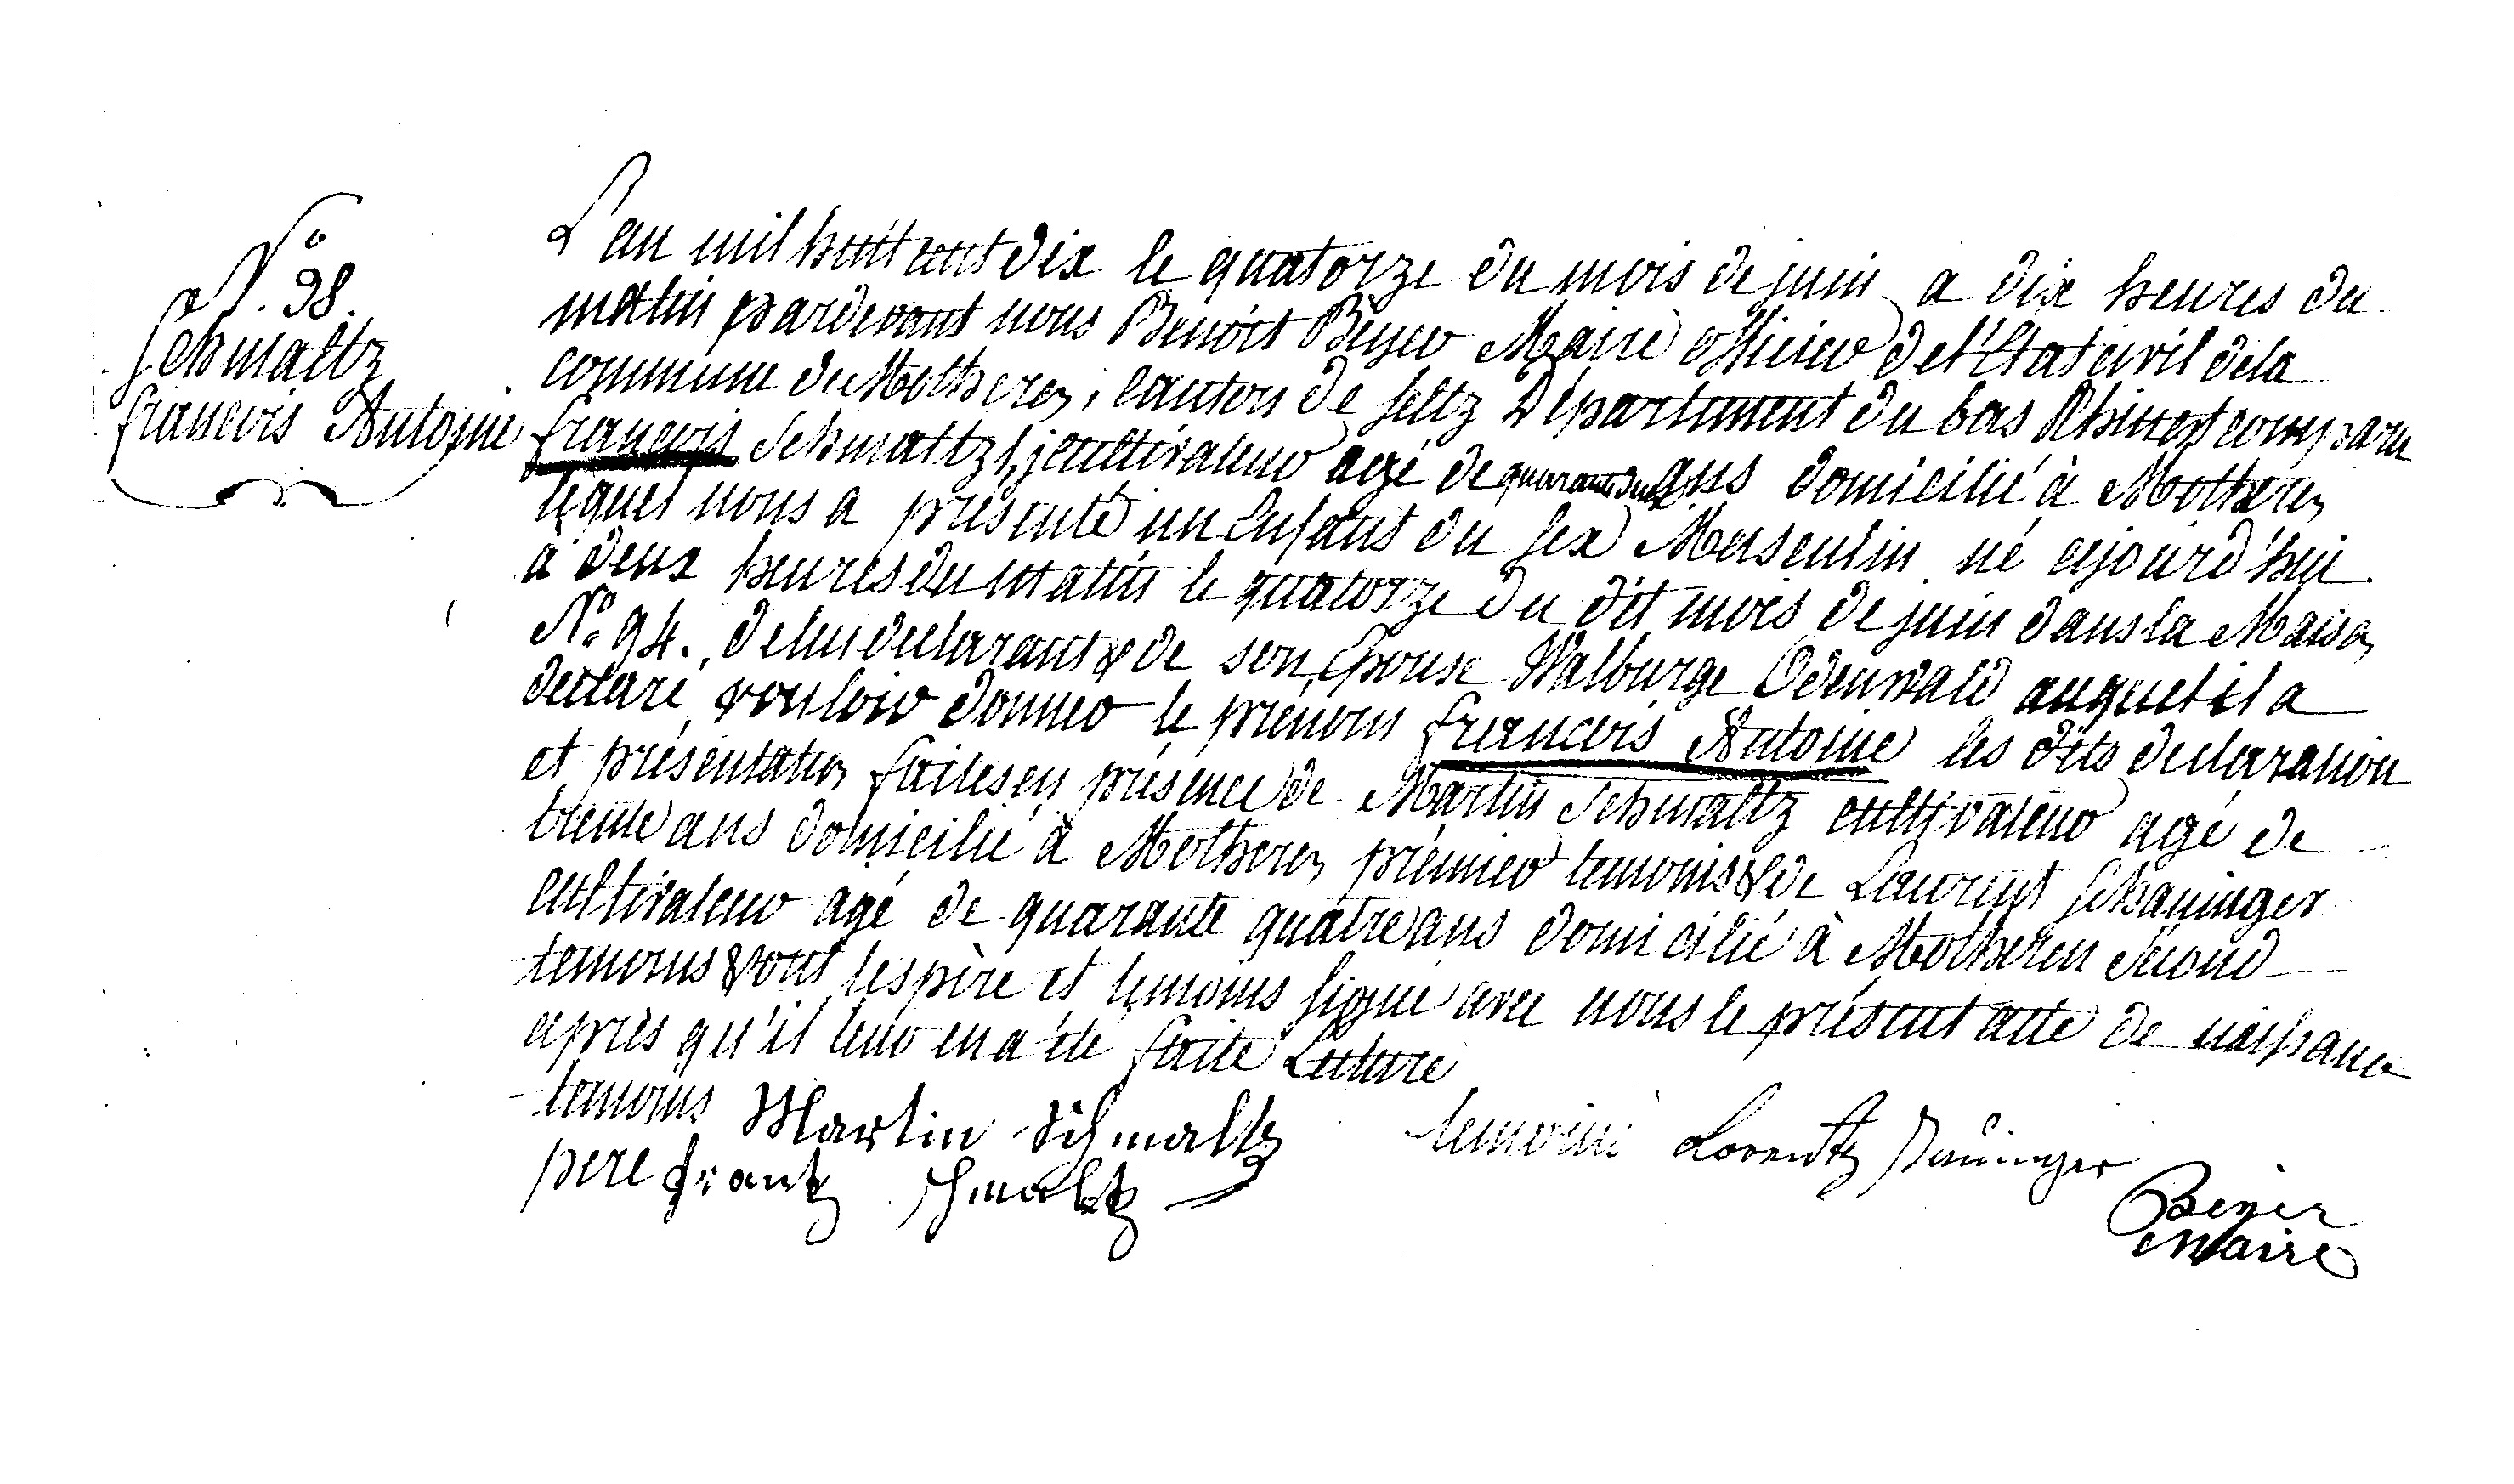 N° 98.
Schmaltz
francois Antoine
L'an mil huit cent dix le quatorze du mois de juin a dix heures du
matin pardevant nous Benoit Beyer Maire officier de l'Etat civil de la
commune de Motheren, canton de Seltz Département du bas Rhin est comparu
francois Schmaltz cultivateur agé de quarante deux ans domicilié à Motheren
lequel nous a présenté un Enfant du sex Masculin né ajourd'hui
à deux heures du matin le quatorze du dit mois de juin dans la Maison
N° 94. de lui declarant & de son Epouse Walburge Odenwald auquel il a
declaré vouloir donner le prénom francois Antoine les dits declaration
et présentation faites en présence de Martin Schmaltz cultivateur agé de
trente ans domicilié à Motheren prémier temoins & de Laurent Schaninger
cultivateur agé de quarante quatre ans domicilié à Motheren Second
temoins & ont les père et temoins signé avec nous le présent acte de naissance
après qu'il leur en a été faite Lecture
temoins Martin Schmaltz temoins Lorentz
pere frantz Schmaltz
Beyer
Maire